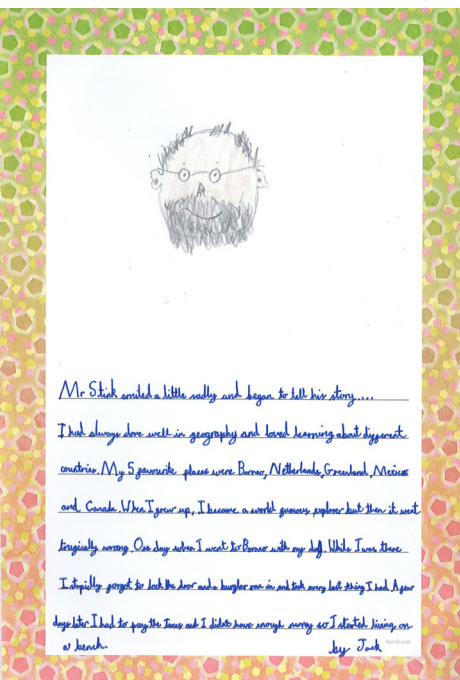 Mr Stink smiled a little sadly and began to tell his story....
I had always done well in geography and loved learning about different
countries. My 5 favourite places were Borneo, Netherlands, Greenland, Mexico
and Canada. When I grew up, I became a world famous explorer but then it went
tragically wrong. One day when I went to Borneo with my . While I was there
I stupidly forgot to lock the door and a burglar came in and took every last thing I had. A few
days later I had to pay the taxes and I didnt have enough money so I started living on
a bench.
by Jack